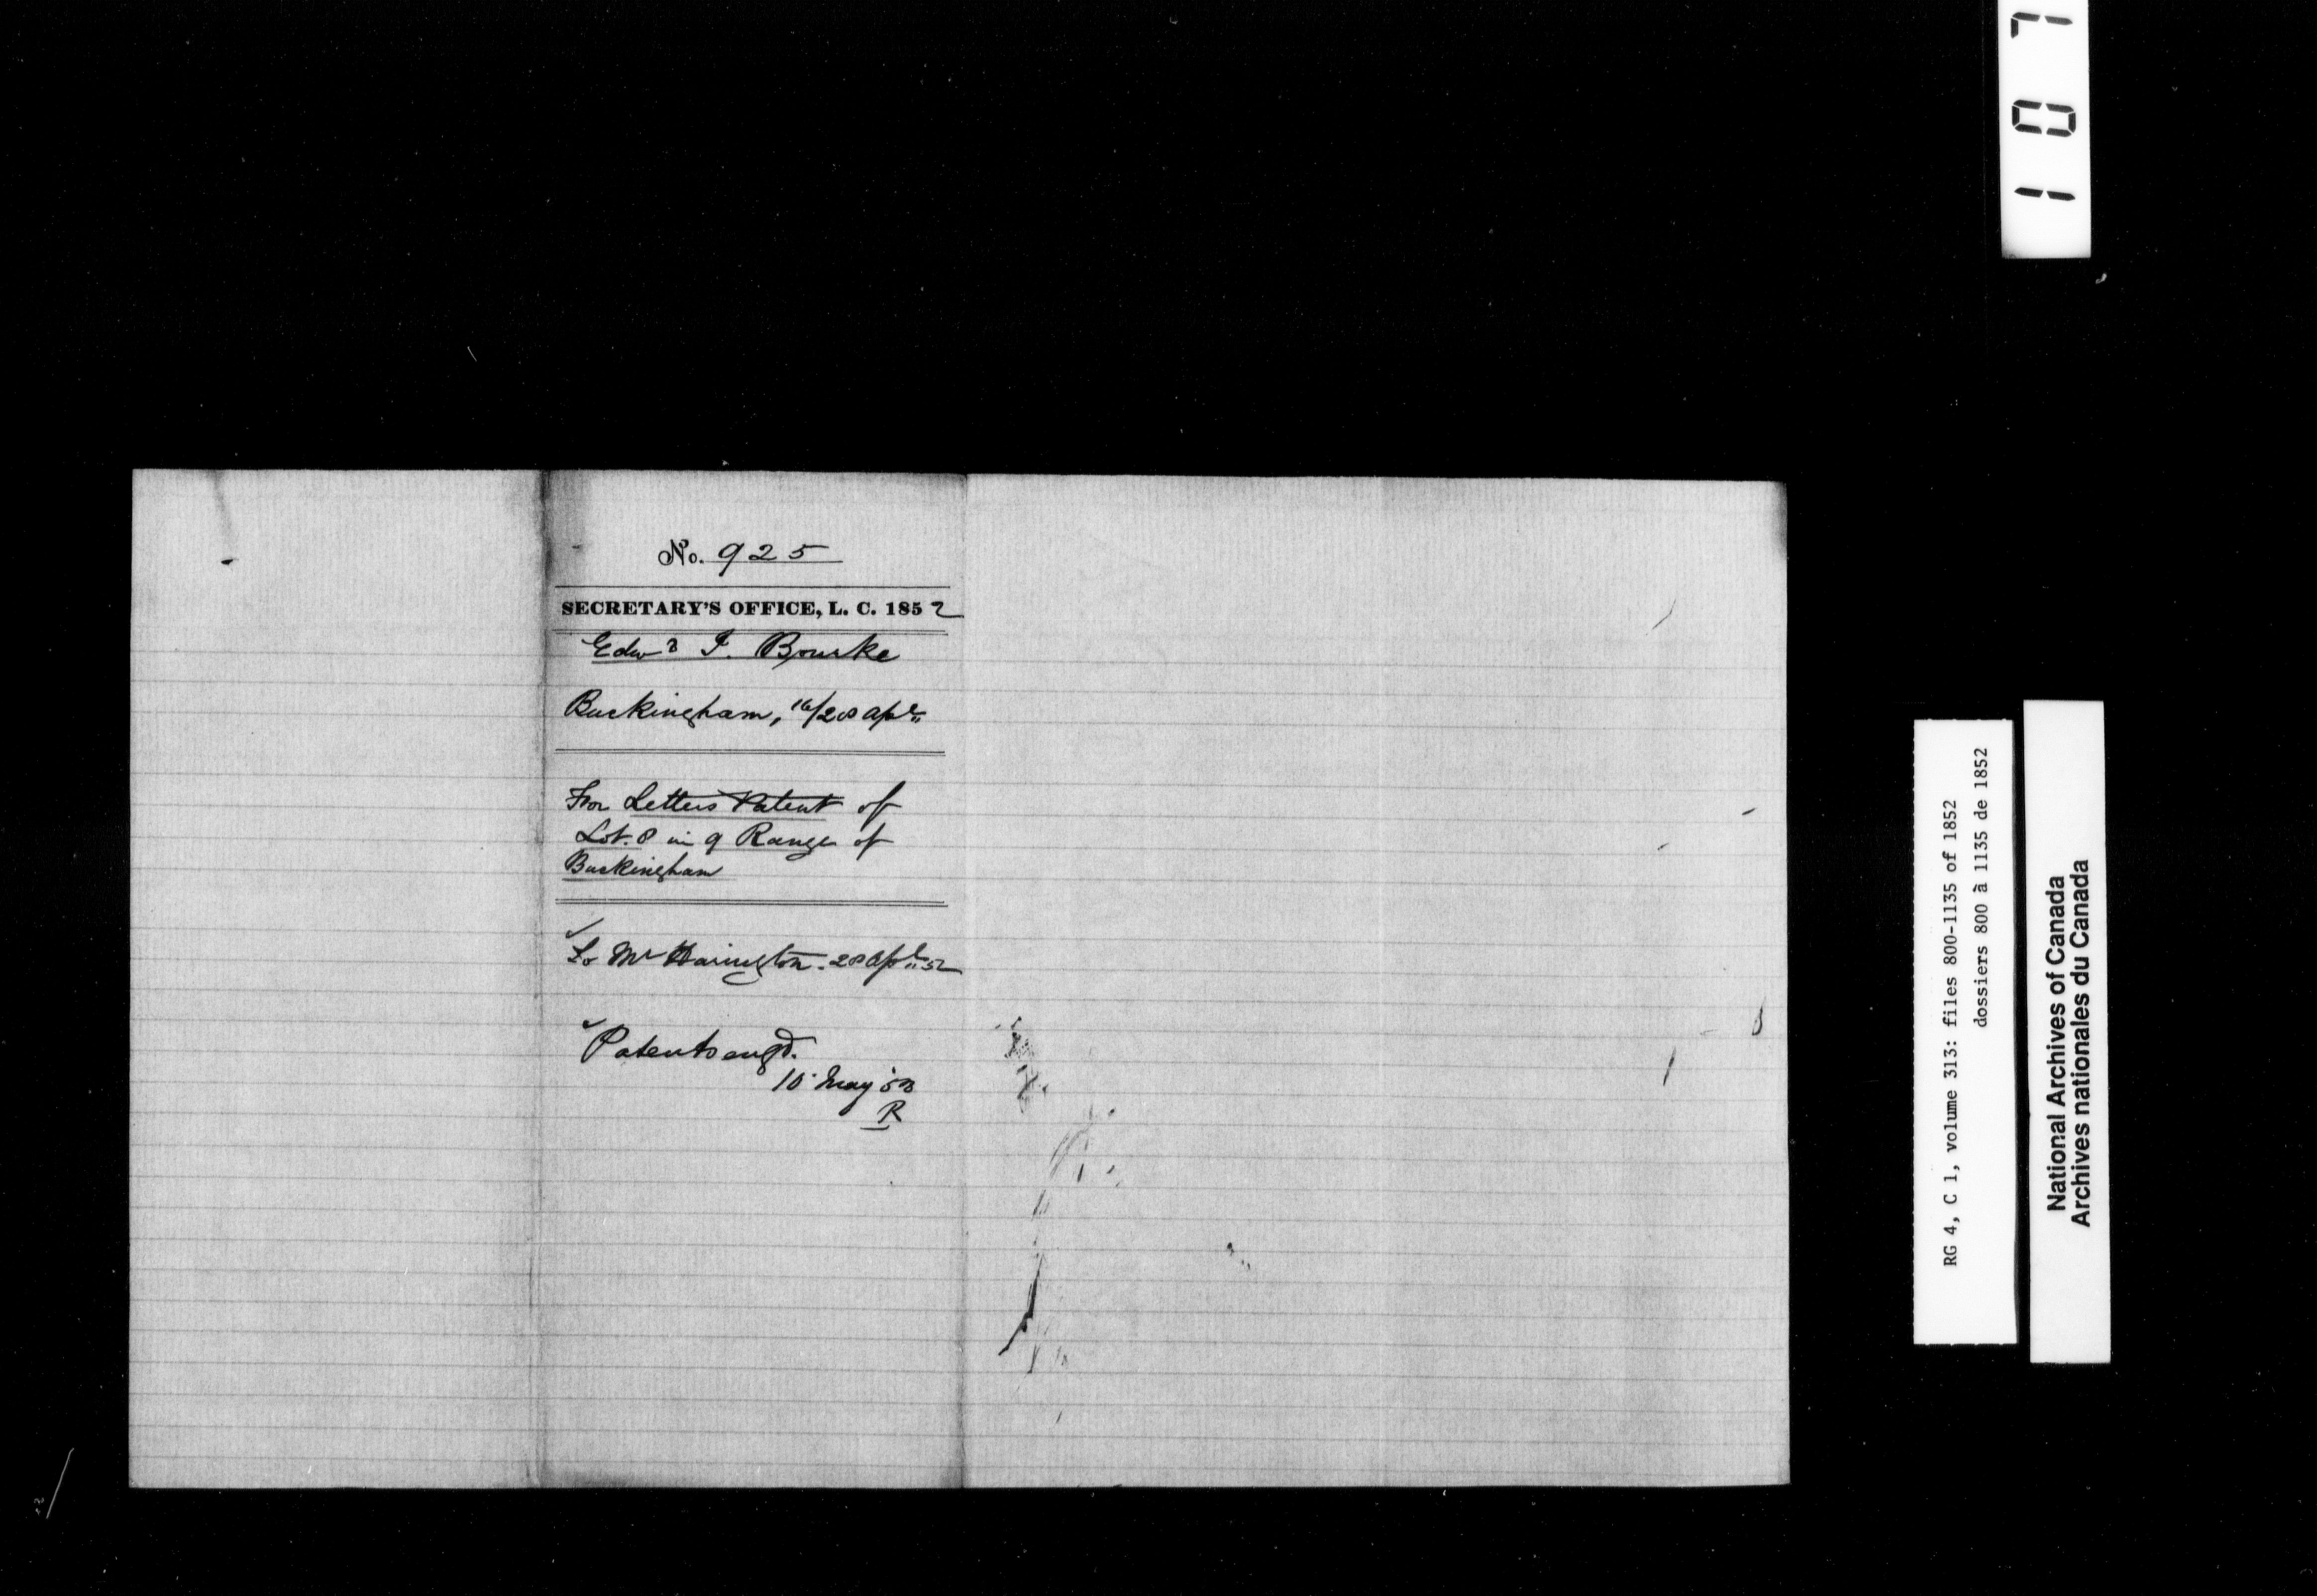 No. 925
SECRETARY'S OFFICE, L. C. 1852
Edwd J. Bourke
Buckingham, 16/28 Apl.
For Letters Patent of
Lot. 8 in 9 Range of
Buckingham
To Mr Harington. 28 Apl. 52
Patent engd.
10 May 53
R
107
RG 4, C 1, volume 313: files 800-1135 of 1852
dossiers 800 à 1135 de 1852
National Archives of Canada
Archives nationales du Canada